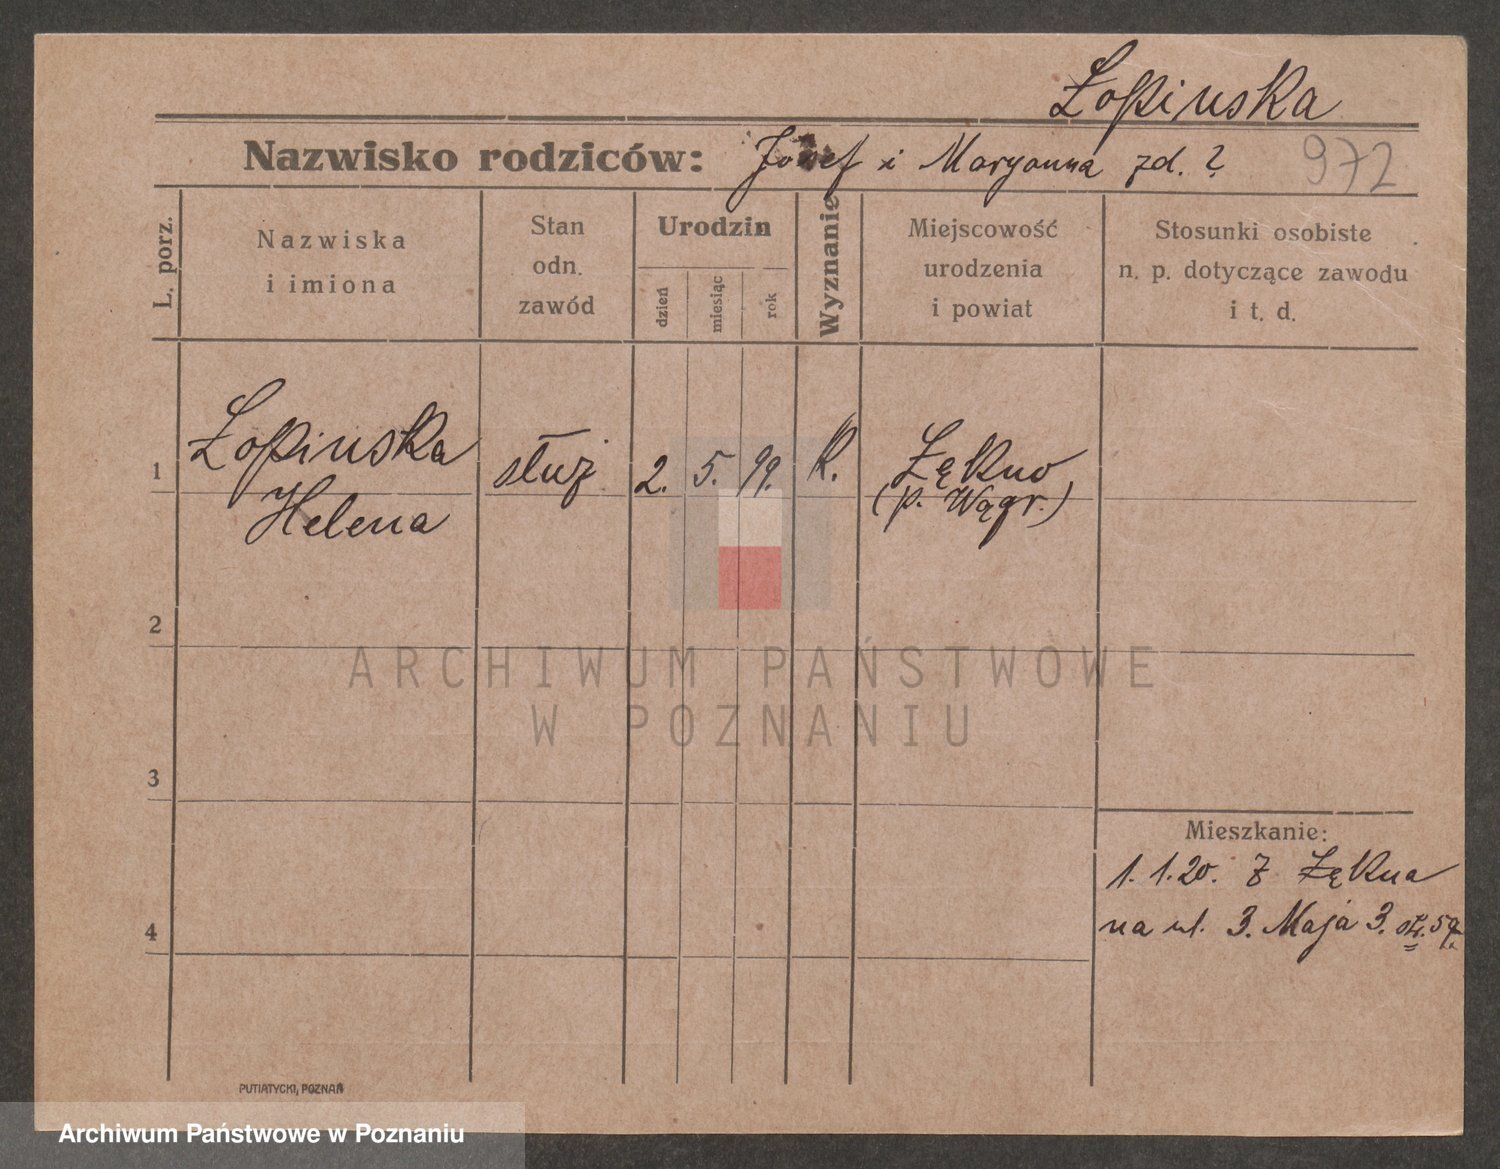 Łopinska
Nazwisko rodziców: Józef i Maryanna zd. ?
972
L. porz.
Nazwiska
i imiona
Stan
odn.
zawód
Urodzin
dzień
miesiąc
rok
Wyznanie
Miejscowość
urodzenia
i powiat
Stosunki osobiste
n. p. dotyczące zawodu
i t. d.
1 Łopinska służ 2. 5. 99. K. Łękno
Helena (p. Wągr.)
2
3
4
ARCHIWUM PAŃSTWOWE
W POZNANIU
Mieszkanie:
1.1.20. z Łękna
na ul. 3. Maja 3.
PUTIATYCKI, POZNAŃ
Archiwum Państwowe w Poznaniu